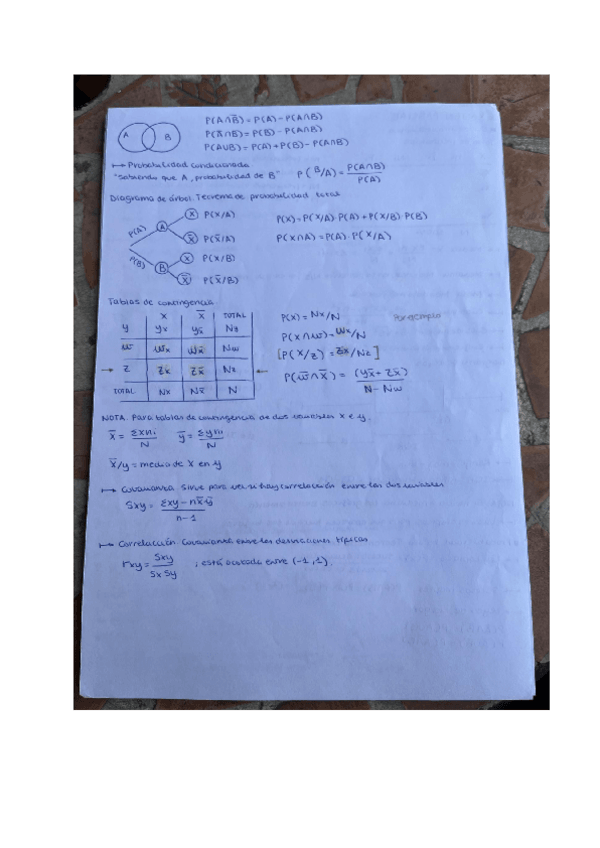 A B
P(A∩B̄) = P(A) - P(A∩B)
P(Ā∩B) = P(B) - P(A∩B)
P(A∪B) = P(A) + P(B) - P(A∩B)
↦ Probabilidad condicionada
"Sabiendo que A, probabilidad de B" P(B/A) = P(A∩B)/P(A)
Diagrama de árbol. Teorema de probabilidad total
P(A) A X P(X/A)
X̄ P(X̄/A)
P(B) B X P(X/B)
X̄ P(X̄/B)
P(X) = P(X/A)·P(A) + P(X/B)·P(B)
P(X∩A) = P(A)·P(X/A)
Tablas de contingencia
X X̄ TOTAL
Y Yx Yx̄ Ny
W Wx Wx̄ Nw
→ Z Zx Zx̄ Nz ←
TOTAL Nx Nx̄ N
P(X) = Nx/N Por ejemplo
P(X∩W) = Wx/N
[P(X̄/Z) = Zx̄/Nz]
P(W̄∩X̄) = (Yx̄ + Zx̄)/N - Nw
NOTA. Para tablas de contingencia de dos variables X e y.
x̄ = Σxni/N ȳ = Σyni/N
x̄/y = media de X en y
↦ Covarianza. Sirve para ver si hay correlación entre las dos variables
Sxy = Σxy - nx̄ȳ/n-1
↦ Correlación. Covarianza entre las desviaciones típicas
rxy = Sxy/Sx Sy ; está acotada entre (-1,1).